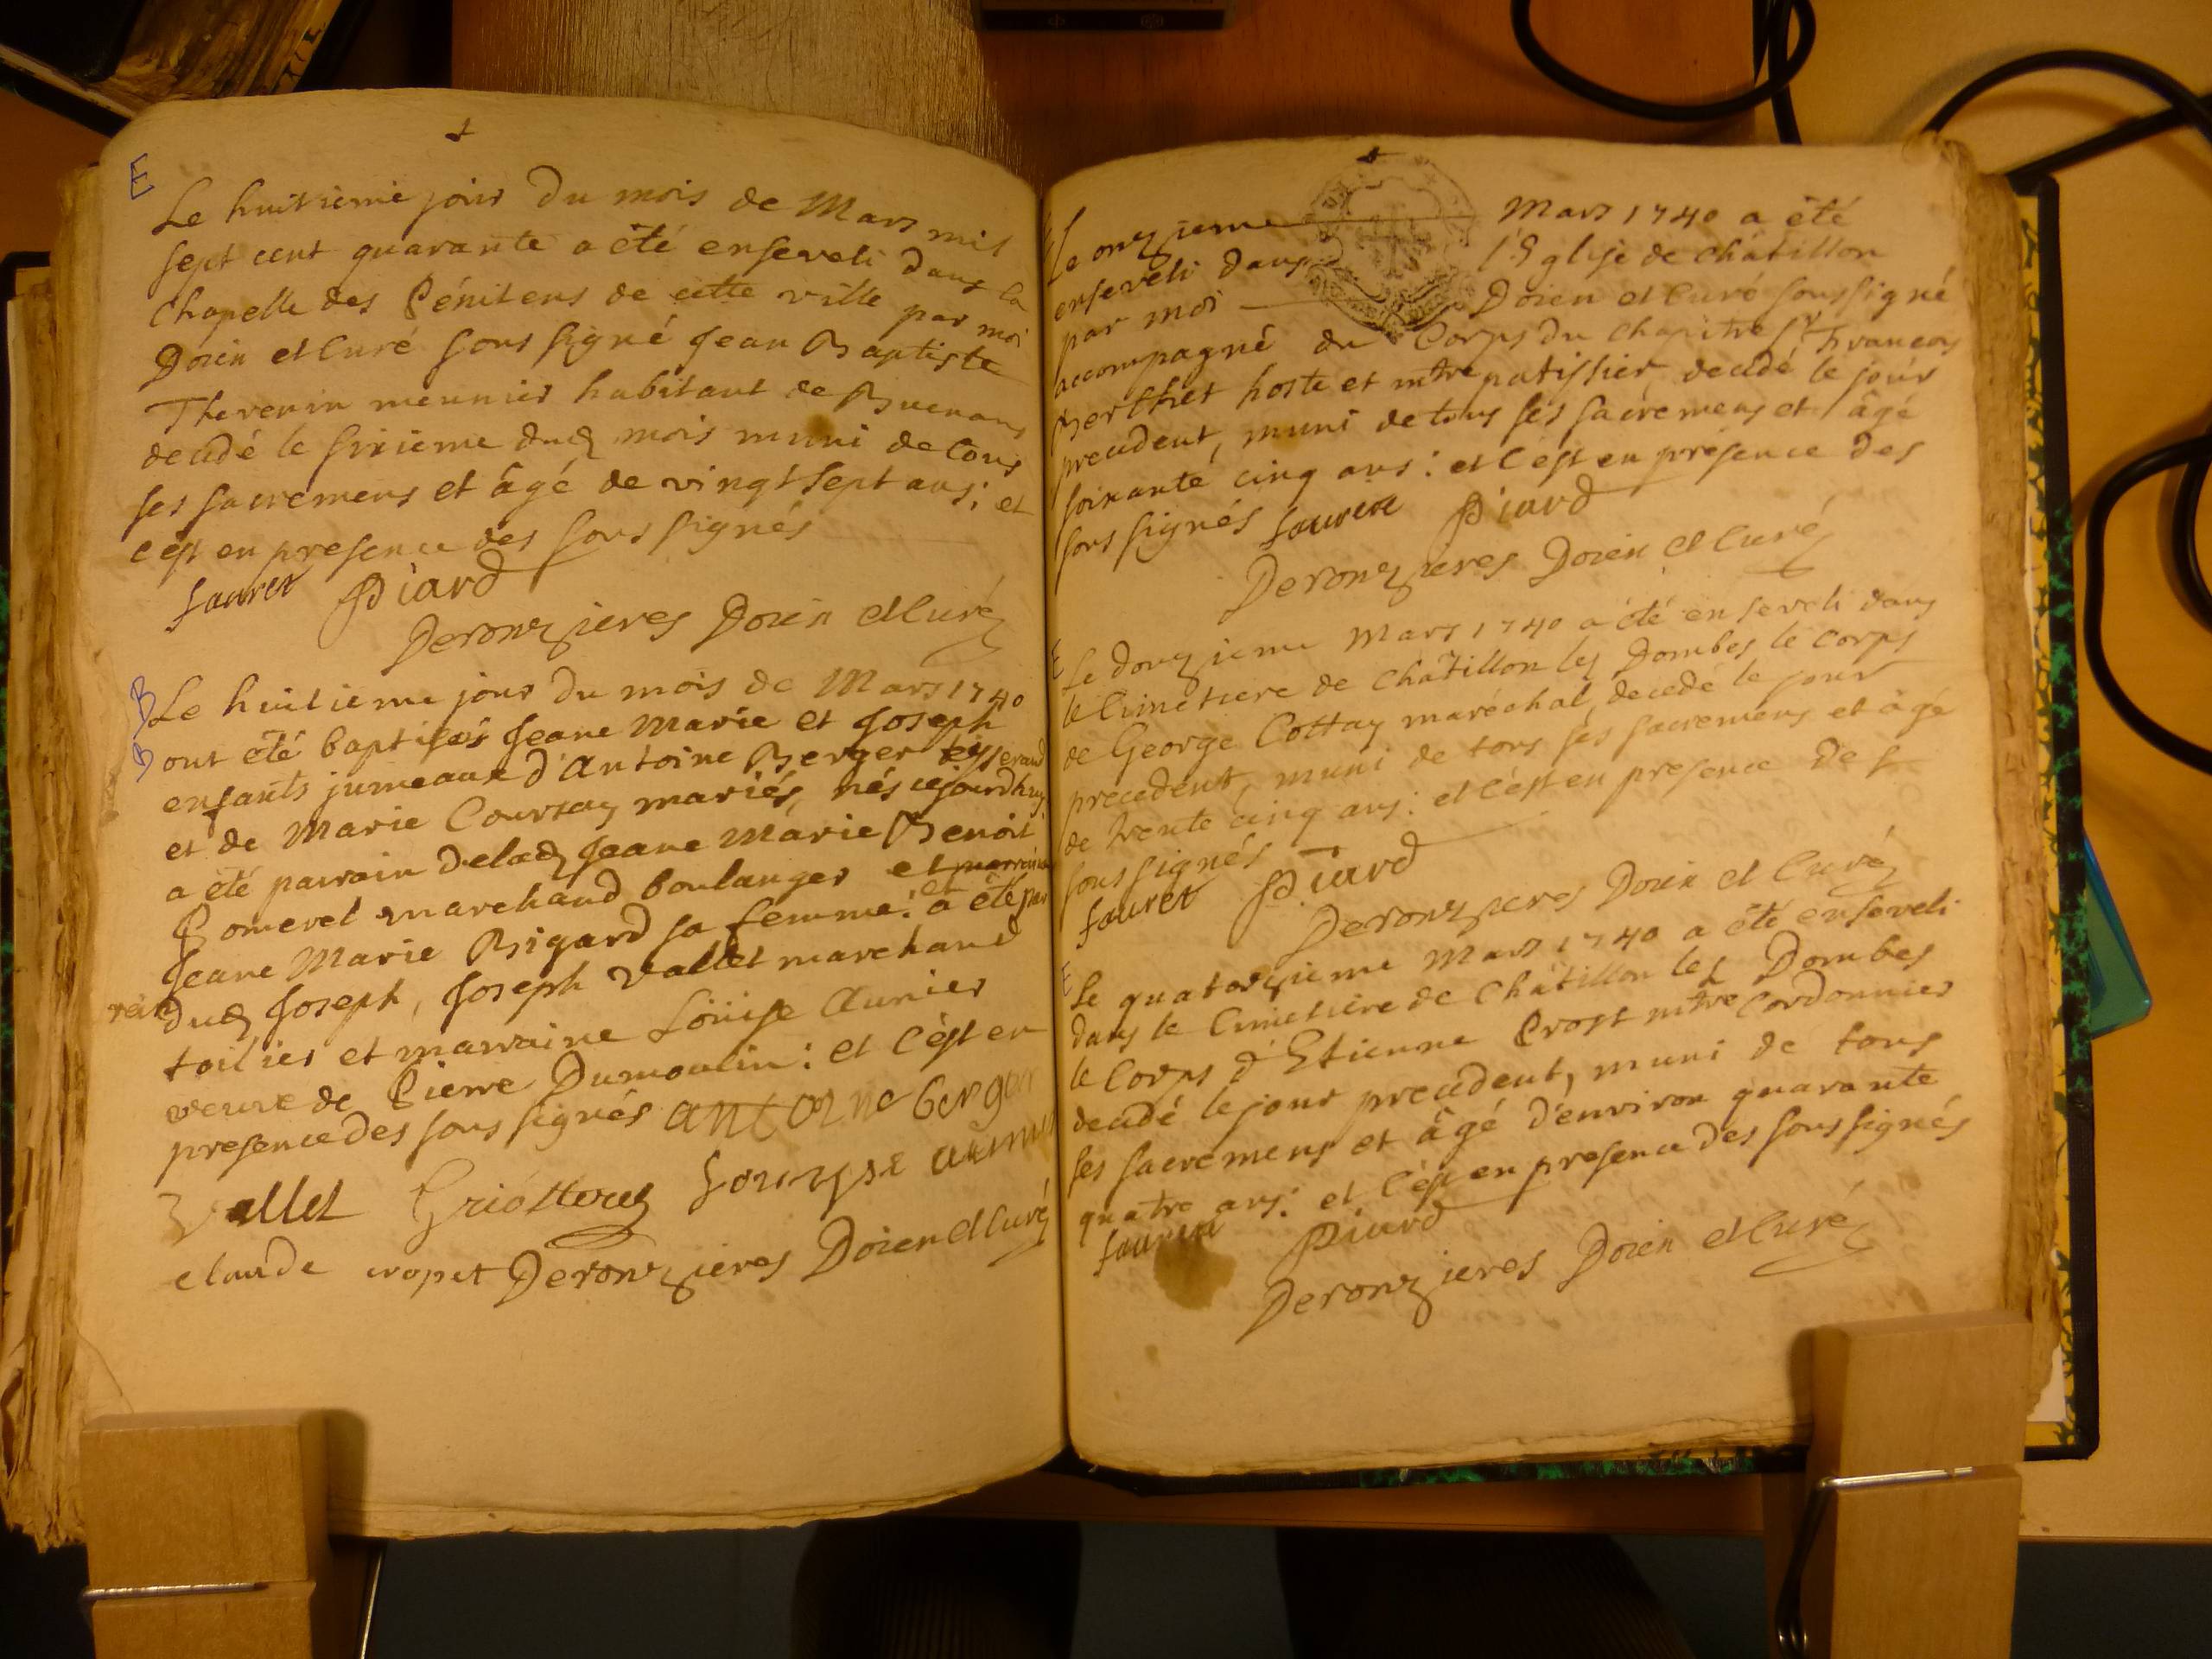 E
Le huitieme jour du mois de Mars mil
sept cent quarante a été enseveli dans la
Chapelle des Pénitens de cette ville par moi
Doien et Curé sous signé Jean Baptiste
Thevenin meunier habitant de Buenans
decedé le sixieme dud mois muni de tous
ses sacremens et âgé de vingt sept ans; et
c'est en presence des sous signés
Sauret Piard
Deronzieres Doien et Curé
B Le huitieme jour du mois de Mars 1740
B ont été baptisés Jeane Marie et Joseph
enfants jumeaux d'Antoine Berger tisserand
et de Marie Coursay mariés, nés cejourdhuy
a été parrain de lad Jeane Marie Benoit
Pomerel marchand boulanger et marraine
Jeane Marie Bigard sa femme: a été par
rein dud Joseph, Joseph Vallet marchand
toilier et marraine Loüise Aunier
veuve de Pierre Dumoulin: et c'est en
presence des sous signés antoine berger
Vallet Louyse aunier
claude Deronzieres Doien et Curé
Le onzieme Mars 1740 a été
enseveli dans l'Eglise de châtillon
par moi Doien et Curé sous signé
accompagné du Corps du chapitre Sr Francois
Berthet hoste et mtre patissier, decedé le jour
precedent, muni de tous ses sacremens et âgé
soixante cinq ans: et c'est en présence des
sous signés Sauret Piard
Deronzieres Doien et Curé
E Le douzieme Mars 1740 a été enseveli dans
le Cimetiere de Châtillon les Dombes le Corps
de George Cottay maréchal, decedé le jour
precedent, muni de tous ses sacremens et âgé
de trente cinq ans: et c'est en presence des
sous signés
Sauret Piard
Deronzieres Doien et Curé
E Le quatorzieme Mars 1740 a été enseveli
dans le Cimetiere de Châtillon les Dombes
le Corps d'Etienne Prost mtre Cordonnier
decedé le jour precedent, muni de tous
ses sacremens et âgé d'environ quarante
quatre ans: et c'est en presence des sous signés
Sauret Piard
Deronzieres Doien et Curé